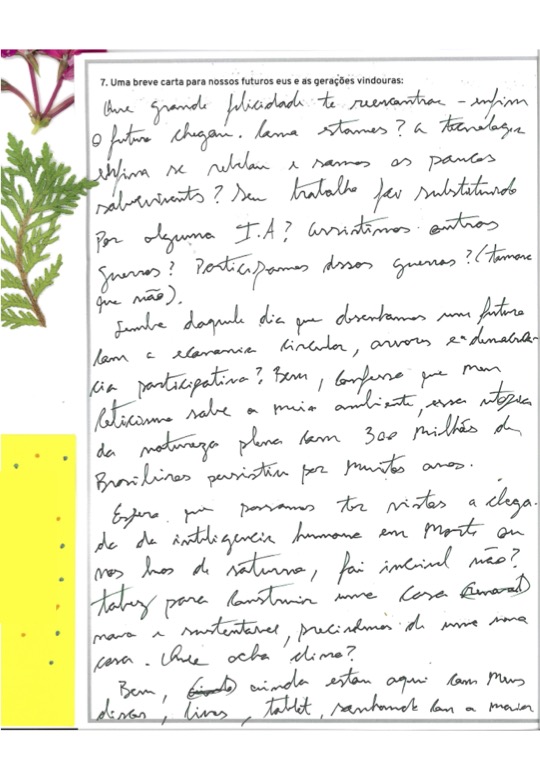 7. Uma breve carta para nossos futuros eus e as gerações vindouras:
Que grande felicidade te reencontrar - enfim
o futuro chegou. Como estamos? A tecnologia
enfim se rebelou e somos os poucos
sobreviventes? Seu trabalho foi substituído
Por alguma I.A? Assistimos outras
guerras? Participamos dessas guerras? (tomara
que não).
Lembra daquele dia que desenhamos um futuro
com a economia circular, arvores e democra-
cia participativa? Bem, confesso que meu
ceticismo sobre o meio ambiente, essa utopia
da natureza plena com 300 milhões de
Brasileiros persistiu por muitos anos.
Espero que possamos ter vistos a chega-
da da inteligencia humana em Marte ou
nas luas de saturno, foi incrivel não?
talvez para construir uma casa
nova e sustentavel, precisamos de uma nova
casa. Que acha disso?
Bem, ainda estou aqui com meus
discos, livros, tablet, sonhando com a maior